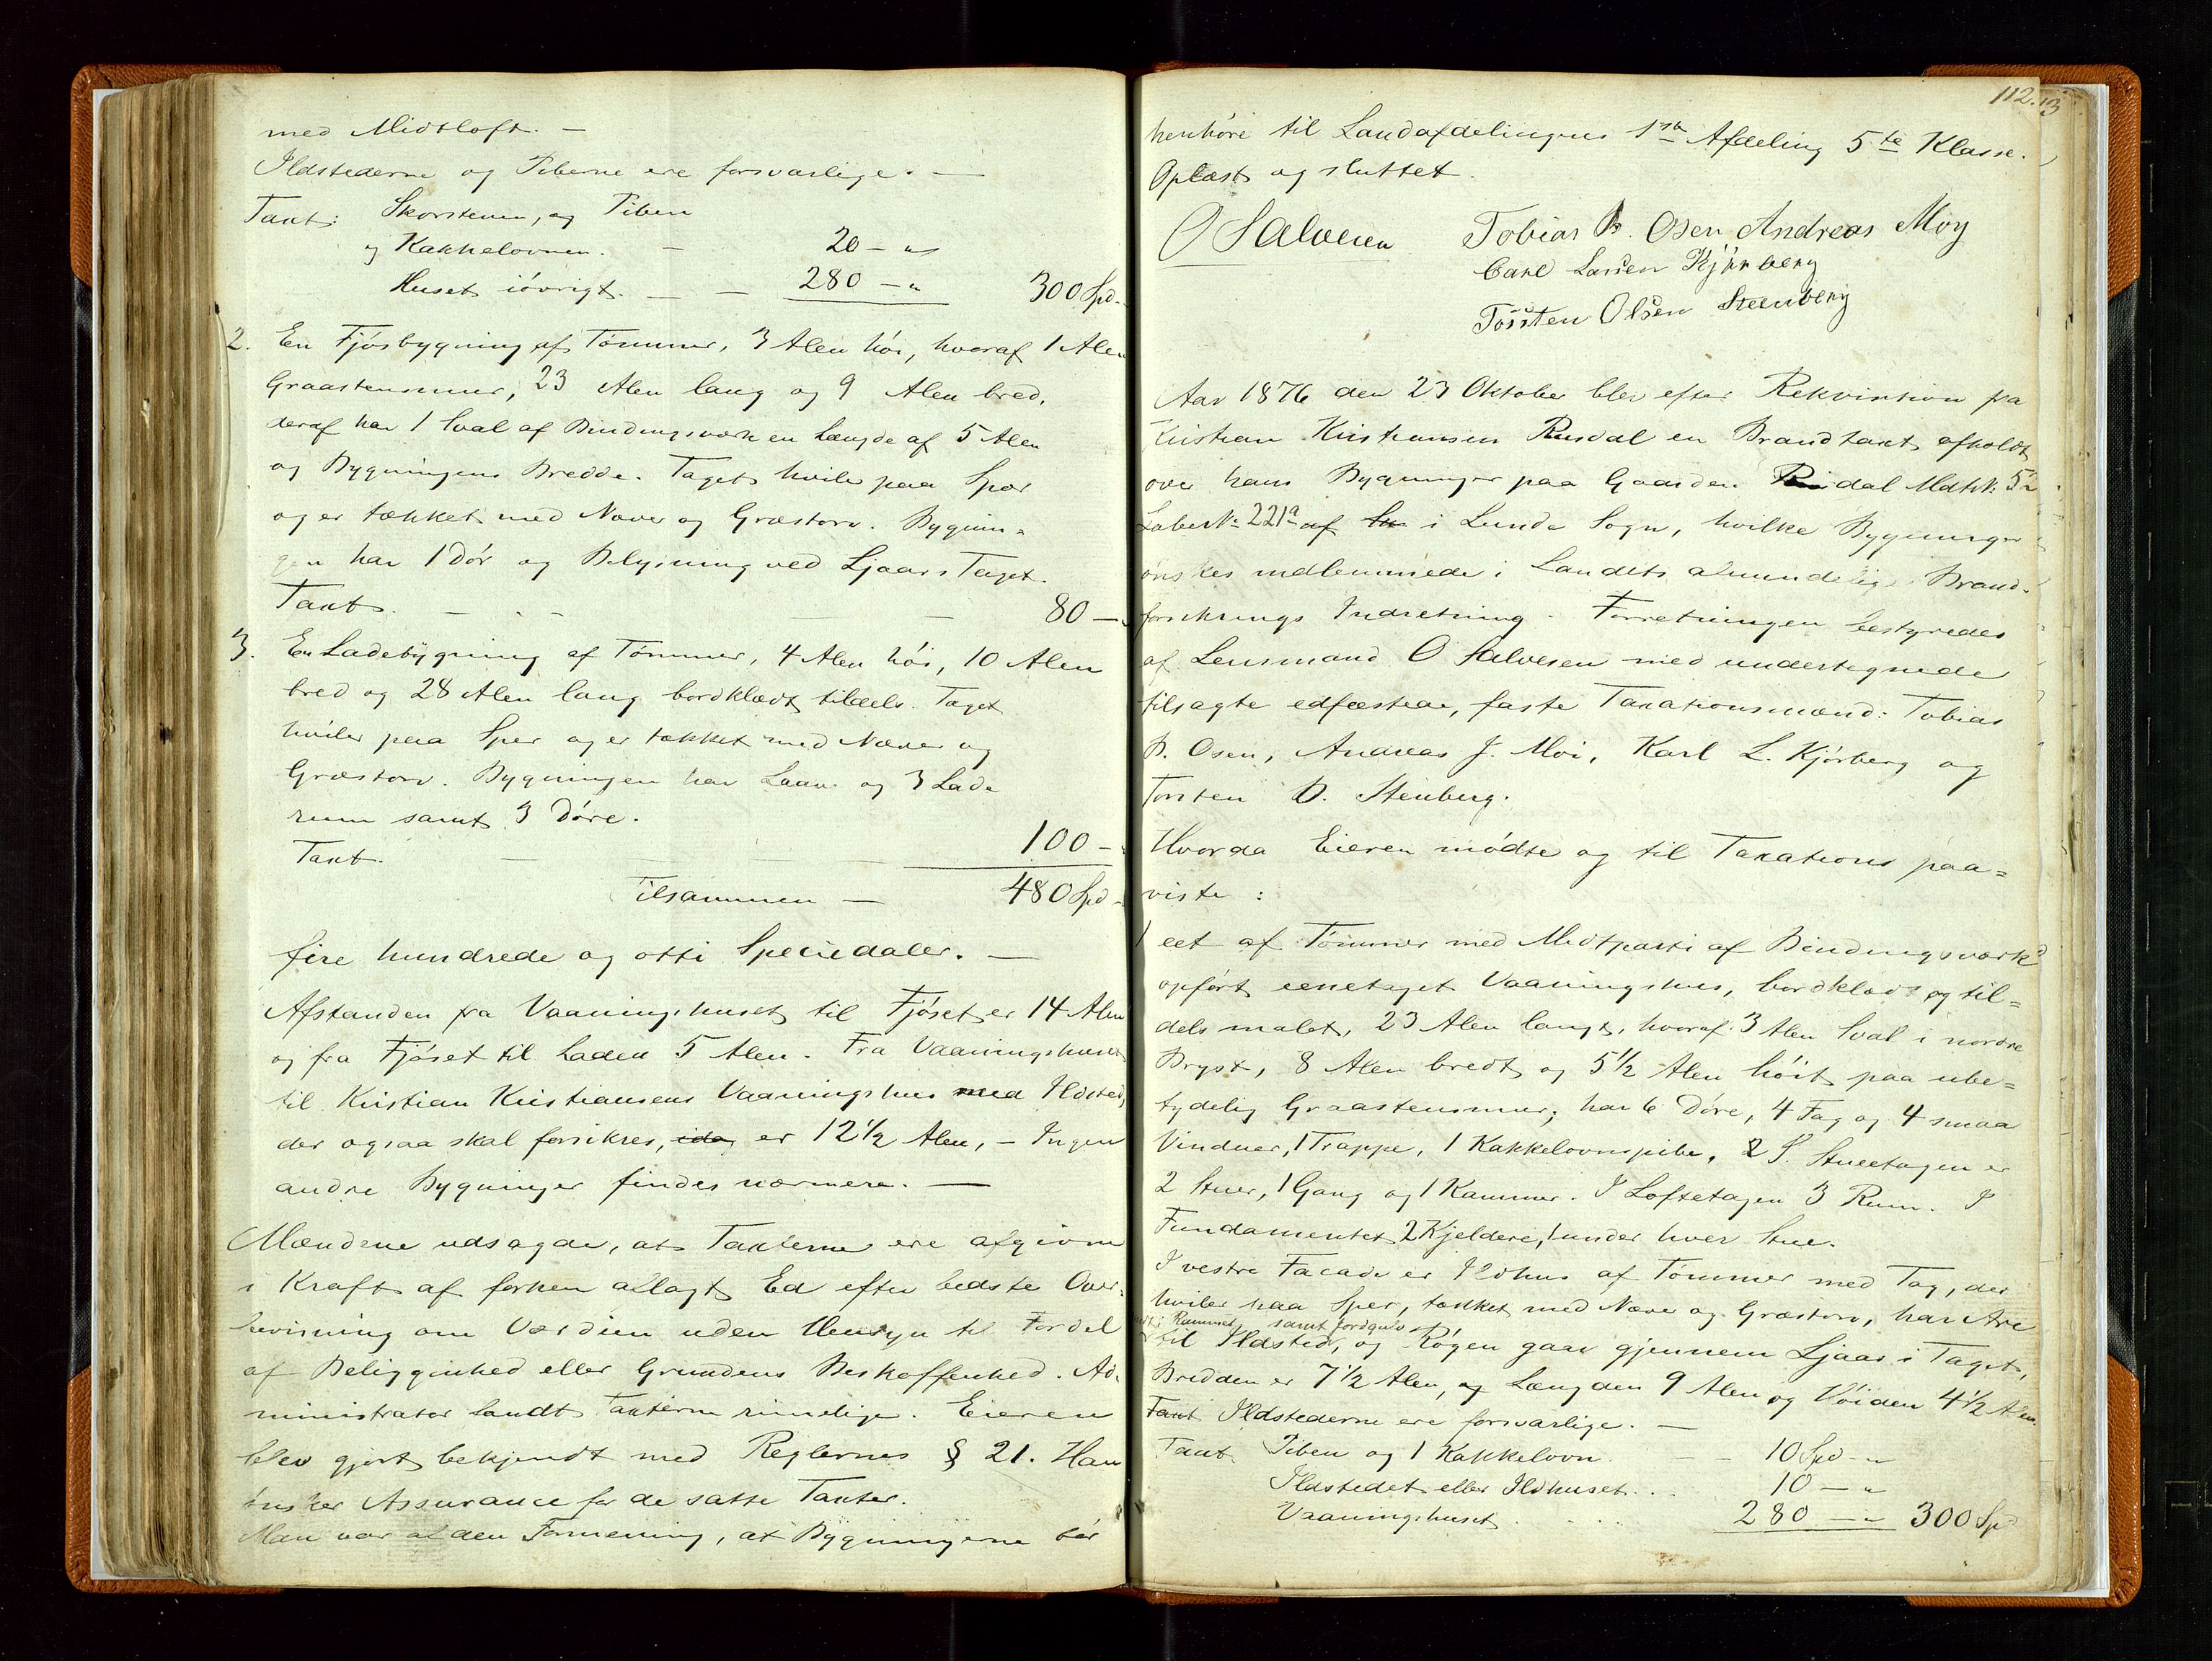 med Midtloft. —
Ildstederne og Piberne ere forsvarlige. —
Taxt: Skorstenen, og Piben
og Kakkelovnen. — 20 — „
Huset iövrigt. — — 280 — „ 300 Spd.
2. En Fjösbygning af Tömmer, 3 Alen höi, hvoraf 1 Alen
Graastensmur, 23 Alen lang og 9 Alen bred,
deraf har 1 Sval af Bindingsværk en Længde af 5 Alen
og Bygningens Bredde. Taget hviler paa Sper
og er tækket med Næver og Græstorv. Bygnin=
gen har 1 Dör og Belysning ved Ljaar i Taget.
Taxt. — 80 —
3. En Ladebygning af Tömmer, 4 Alen höi, 10 Alen
bred og 28 Alen lang bordklædt tildels. Taget
hviler paa Sper og er tækket med Næver og
Græstorv. Bygningen har Laave og 3 Lade
rum samt 3 Döre.
Taxt. — 100 —
Tilsammen — 480 Spd.
fire hundrede og otti Speciedaler. —
Afstanden fra Vaaningshuset til Fjöset er 14 Alen
og fra Fjöset til Laden 5 Alen. Fra Vaaningshuset
til Kristian Kristiansens Vaaningshus med Ildsted,
der ogsaa skal forsikres, er 12 1/2 Alen, — Ingen
andre Bygninger findes nærmere. —
Mændene udsagde, at Taxterne ere afgivne
i Kraft af forhen aflagt Ed efter bedste Over=
bevisning om Værdien uden Hensyn til Fordel
af Beliggenhed eller Grundens Beskaffenhed. Ad=
ministrator fandt Taxterne rimelige. Eieren
blev gjort bekjendt med Reglernes § 21. Han
önsker Assurance for de satte Taxter.
Man var af den Formening, at Bygningerne bör
112.
henhöre til Landafdelingens 1ste Afdeling 5te Klasse.
Oplæst og sluttet.
O Salvesen Tobias B. Osen Andreas Moy
Carl Larsen Kjörberg
Torsten Olsen Steenberg
Aar 1876 den 23 Oktober blev efter Rekvisition fra
Kristian Kristiansen Rusdal en Brandtaxt afholdt
over hans Bygninger paa Gaarden Rusdal Matr: 52
Löbe No 221a af i Lunde Sogn, hvilke Bygninger
önskes indlemmede i Landets almindelige Brand=
forsikrings Indretning. Forretningen bestyredes
af Lensmand O Salvesen med undertegnede
tilsagte edfæstede, faste Taxationsmænd: Tobias
B. Osen, Andreas J. Moi, Karl L. Kjörberg og
Torsten O. Stenberg.
Hvorda Eieren mödte og til Taxations paa=
viste:
1 eet af Tömmer med Midtparti af Bindingsværk
opfört eenetaget Vaaningshus, bordklædt og til=
dels malet, 23 Alen langt, hvoraf 3 Alen Sval i nordre
Bryst, 8 Alen bredt og 5 1/2 Alen höit paa ube=
tydelig Graastensmur, har 6 Döre, 4 Fag og 4 smaa
Vinduer, 1 Trappe, 1 Kakkelovnspibe. I Stueetagen er
2 Stuer, 1 Gang og 1 Kammer. I Loftetagen 3 Rum. I
Fundamentet 2 Kjeldere, 1 under hver Stue.
I vestre Facade er Ildhus af Tömmer med Tag, der
hviler paa Sper, tækket med Næver og Græstorv, har Are
i Rummet samt Jordgulv
til Ildsted, og Rögen gaar gjennem Ljaar i Taget,
Bredden er 7 1/2 Alen, og Længden 9 Alen og Höiden 4 1/2 Alen.
Taxt Ildstederne ere forsvarlige. —
Taxt Piben og 1 Kakkelovn. — 10 Spd — „
Ildstedet eller Ildhuset. . . 10 — „
Vaaningshuset . . . 280 — „ 300 Spd